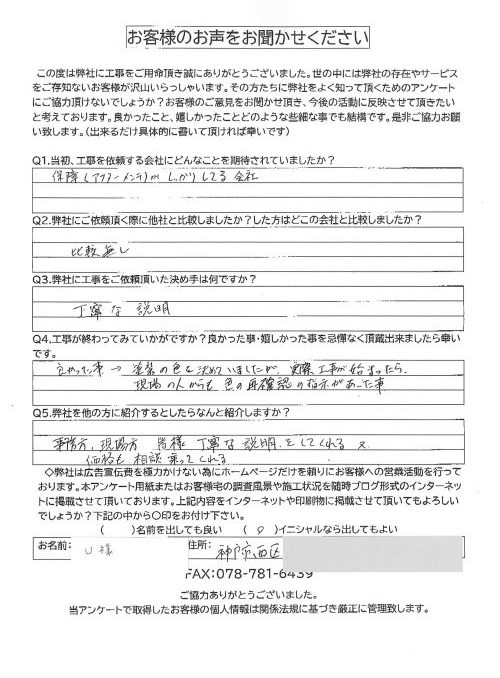 お客様のお声をお聞かせください
この度は弊社に工事をご用命頂き誠にありがとうございました。世の中には弊社の存在やサービス
をご存知ないお客様が沢山いらっしゃいます。その方たちに弊社をよく知って頂くためのアンケート
にご協力頂けないでしょうか？お客様のご意見をお聞かせ頂き、今後の活動に反映させて頂きたい
と考えております。良かったこと、嬉しかったことどのような些細な事でも結構です。是非ご協力お願
い致します。（出来るだけ具体的に書いて頂ければ幸いです）
Q1.当初、工事を依頼する会社にどんなことを期待されていましたか？
保障（アフターメンテ）がしっかりしてる会社
Q2.弊社にご依頼頂く際に他社と比較しましたか？した方はどこの会社と比較しましたか？
比較無し
Q3.弊社に工事をご依頼頂いた決め手は何ですか？
丁寧な説明
Q4.工事が終わってみていかがですか？良かった事・嬉しかった事を忌憚なく頂戴出来ましたら幸い
です。
良かった事→塗装の色を決めていましたが、実際工事が始まったら、
現場の人からも、色の再確認の指示があった事
Q5.弊社を他の方に紹介するとしたらなんと紹介しますか？
事務方、現場方 皆様 丁寧な説明をしてくれる 又
価格も相談乗ってくれる
◇弊社は広告宣伝費を極力かけない為にホームページだけを頼りにお客様への営業活動を行って
おります。本アンケート用紙またはお客様宅の調査風景や施工状況を随時ブログ形式のインターネッ
トに掲載させて頂いております。上記内容をインターネットや印刷物に掲載させて頂いてもよろしい
でしょうか？下記の中から〇印をお付け下さい。
（ ）名前を出しても良い （ ○ ）イニシャルなら出してもよい
お名前： U様 住所： 神戸市西区
FAX:078-781-6439
ご協力ありがとうございました。
当アンケートで取得したお客様の個人情報は関係法規に基づき厳正に管理致します。